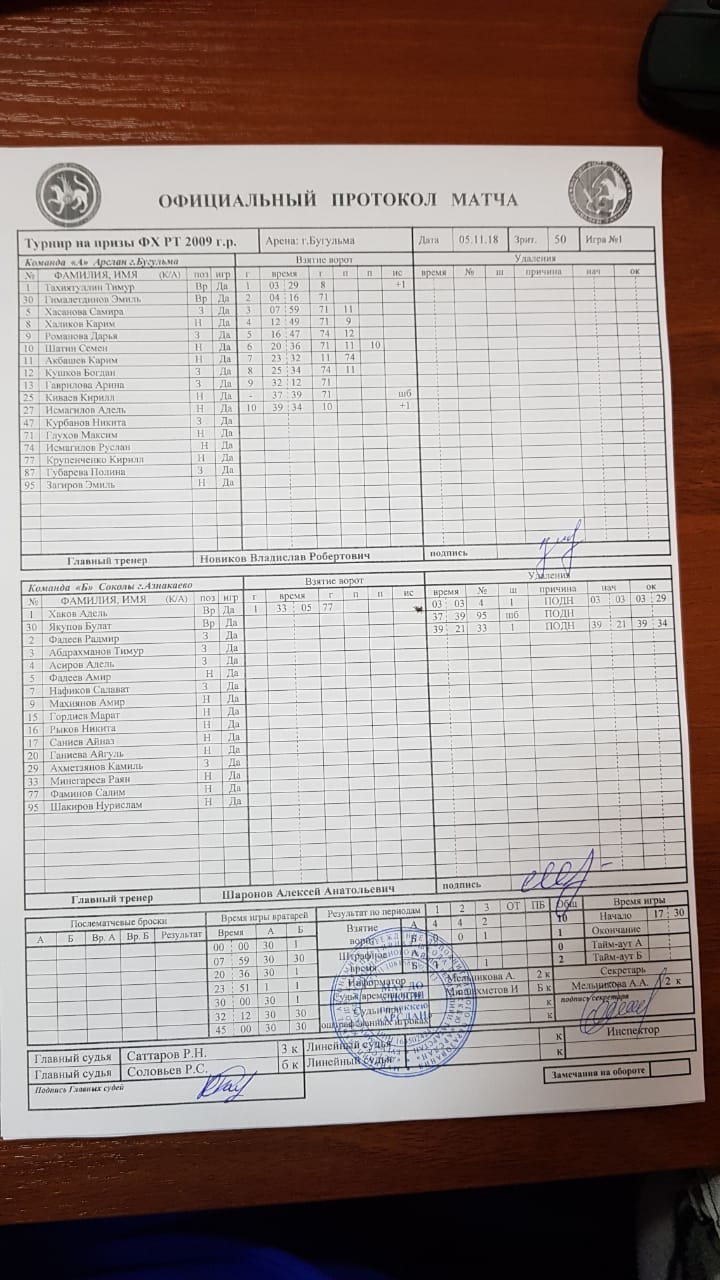 ОФИЦИАЛЬНЫЙ ПРОТОКОЛ МАТЧА
Турнир на призы ФХ РТ 2009 г.р. Арена: г.Бугульма Дата 05.11.18 Зрит. 50 Игра №1
Команда «А» Арслан г.Бугульма Взятие ворот Удаления
№ ФАМИЛИЯ, ИМЯ (К/А) поз игр г время г п п ис время № ш причина нач ок
1 Тахиятуллин Тимур Вр Да 1 03 29 8 +1
30 Гималетдинов Эмиль Вр Да 2 04 16 71
5 Хасанова Самира З Да 3 07 59 71 11
8 Халиков Карим Н Да 4 12 49 71 9
9 Романова Дарья З Да 5 16 47 74 12
10 Шагин Семен Н Да 6 20 36 71 11 10
11 Акбашев Карим Н Да 7 23 32 11 74
12 Кушков Богдан З Да 8 25 34 74 11
13 Гаврилова Арина З Да 9 32 12 71
25 Киваев Кирилл Н Да - 37 39 71 шб
27 Исмагилов Адель Н Да 10 39 34 10 +1
47 Курбанов Никита З Да
71 Глухов Максим Н Да
74 Исмагилов Руслан Н Да
77 Крупенченко Кирилл Н Да
87 Губарева Полина З Да
95 Загиров Эмиль Н Да
Главный тренер Новиков Владислав Робертович подпись
Команда «Б» Соколы г.Азнакаево Взятие ворот Удаления
№ ФАМИЛИЯ, ИМЯ (К/А) поз игр г время г п п ис время № ш причина нач ок
1 Хаков Адель Вр Да 1 33 05 77 03 03 4 1 ПОДН 03 03 03 29
30 Якупов Булат Вр Да 37 39 95 шб ПОДН
2 Фадеев Радмир З Да 39 21 33 1 ПОДН 39 21 39 34
3 Абдрахманов Тимур З Да
4 Асиров Адель З Да
5 Фадеев Амир Н Да
7 Нафиков Салават З Да
9 Махиянов Амир Н Да
15 Гордиев Марат Н Да
16 Рыков Никита Н Да
17 Саниев Айназ Н Да
20 Ганиева Айгуль Н Да
29 Ахметзянов Камиль З Да
33 Минегареев Раян Н Да
77 Фаминов Салим Н Да
95 Шакиров Нурислам Н Да
Главный тренер Шаронов Алексей Анатольевич подпись
Послематчевые броски Время игры вратарей Результат по периодам 1 2 3 ОТ ПБ Общ Время игры
А Б Вр. А Вр. Б Результат Время А Б Взятие ворот А 4 4 2 10 Начало 17 30
00 00 30 1 Б 0 0 1 1 Окончание
07 59 30 30 Штрафное время А 0 Тайм-аут А
20 36 30 1 Б 1 1 2 Тайм-аут Б
23 51 1 1 Информатор Мельникова А. 2 к Секретарь
30 00 30 1 Судья времени игры Б к Мельникова А.А. 2 к
32 12 30 30 Судьи при оштрафованных игроках к подпись секретаря
45 00 30 30 к
Главный судья Саттаров Р.Н. 3 к Линейный судья к Инспектор
Главный судья Соловьев Р.С. б к Линейный судья к
Подпись Главных судей Замечания на обороте